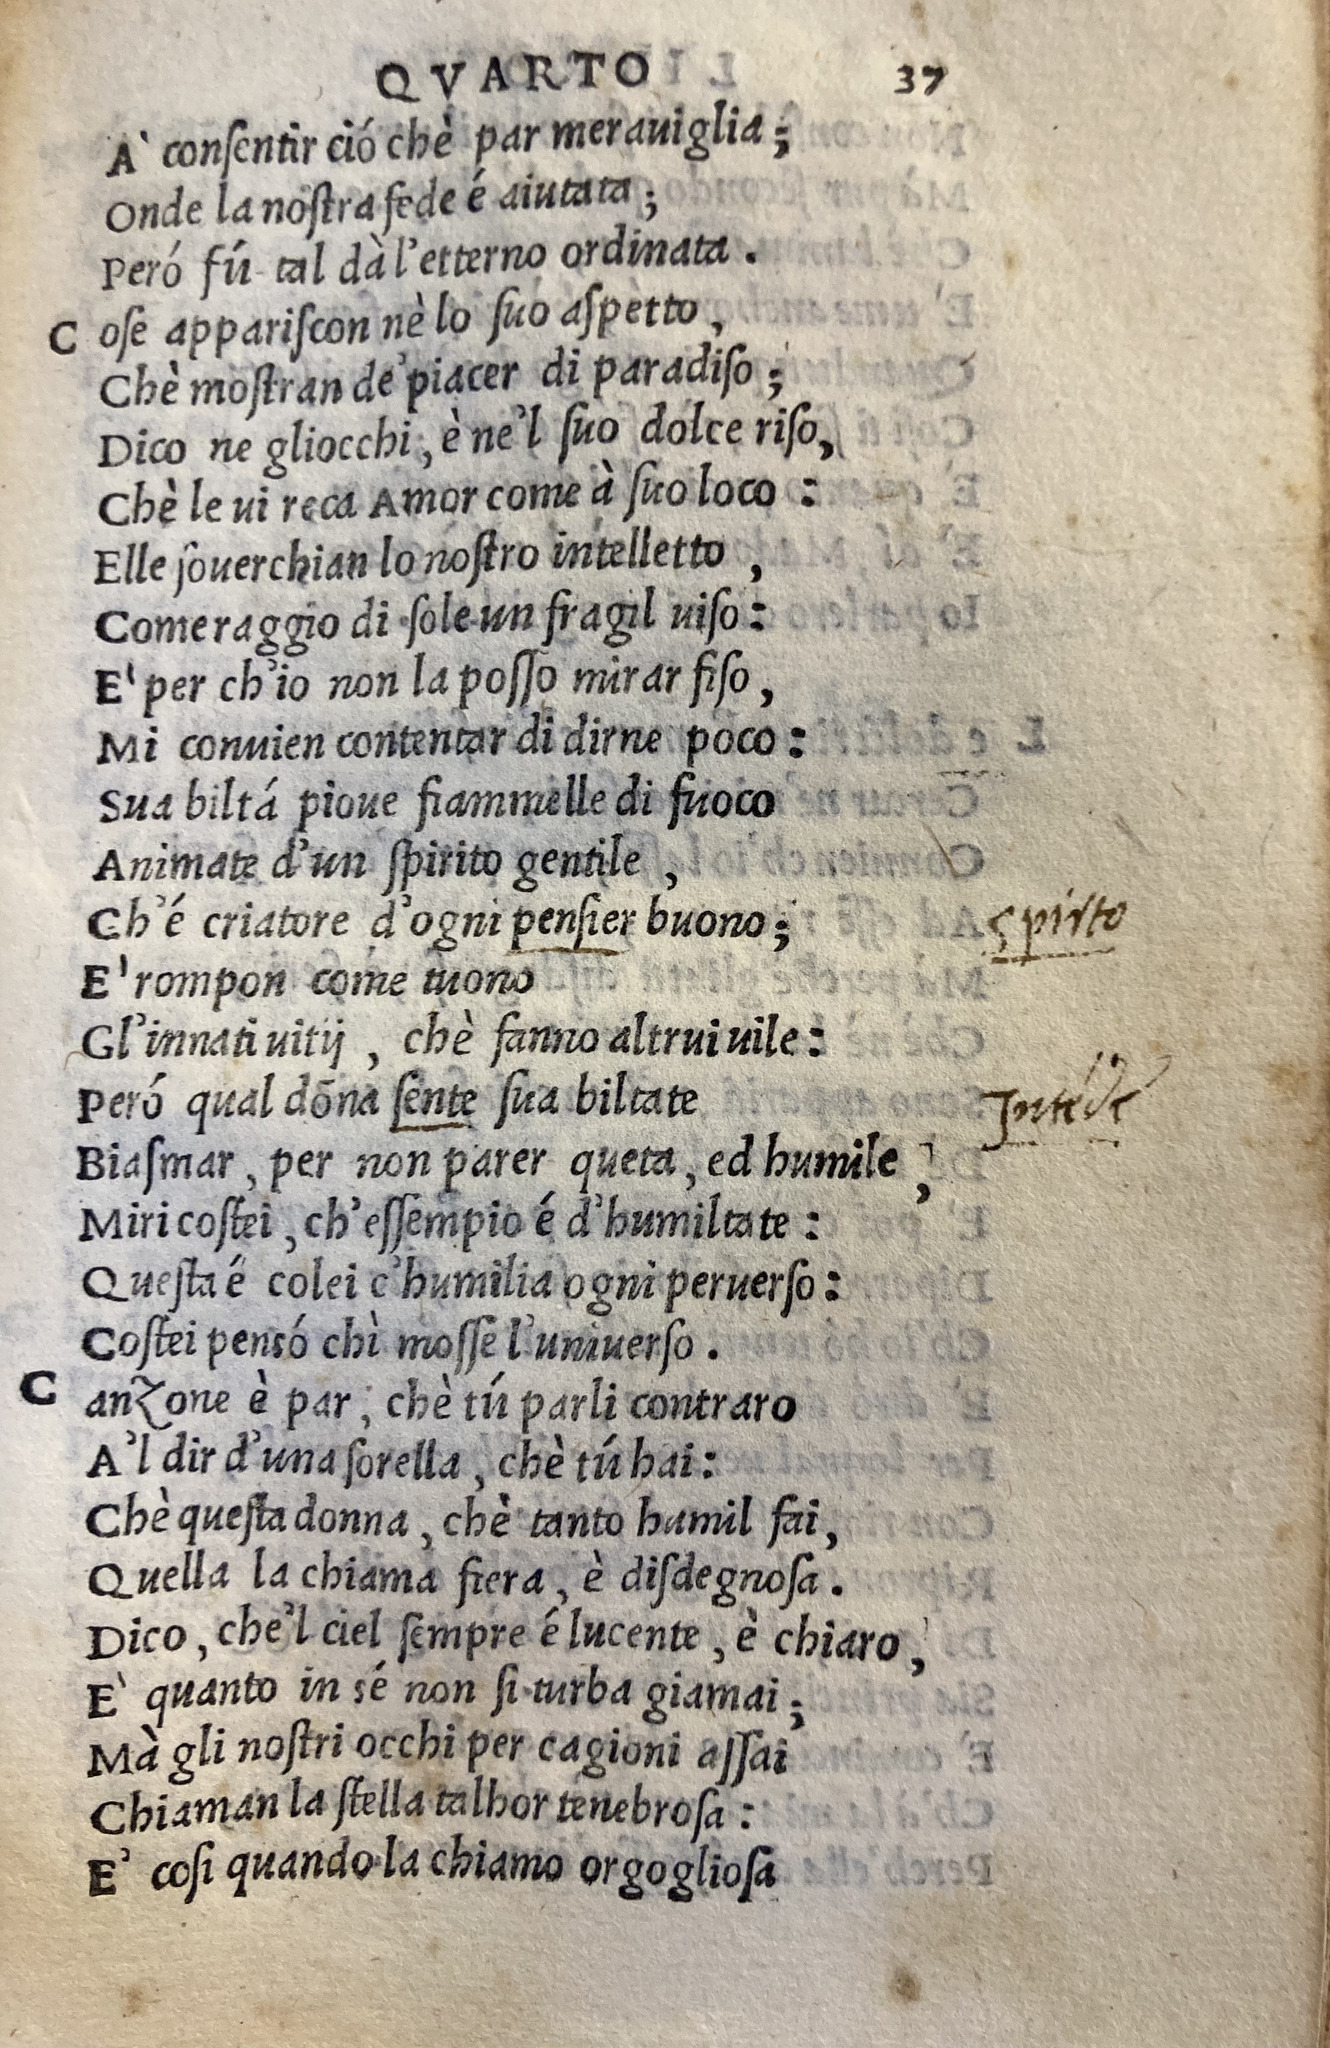 QVARTO 37
A` conſentir ció chè par merauiglia;
Onde la noſtra fede é aiutata;
Peró fú tal dà l'etterno ordinata.
Coſe appariſcon nè lo ſuo aſpetto,
Chè moſtran de' piacer di paradiſo;
Dico ne gliocchi, è ne'l ſuo dolce riſo,
Chè le ui reca Amor come à ſuo loco:
Elle ſouerchian lo noſtro intelletto,
Come raggio di ſole un fragil uiſo:
E' per ch'io non la poſſo mirar fiſo,
Mi conuien contentar di dirne poco:
Sua biltá pioue fiammelle di fuoco
Animate d'un ſpirito gentile,
Ch'é criatore d'ogni penſier buono;
spirto
E' rompon come tuono
Gl'innati uitij, chè fanno altrui uile:
Peró qual dōna ſente ſua biltate
Intēde
Biaſmar, per non parer queta, ed humile,
Miri coſtei, ch'eſſempio é d'humiltate:
Queſta é colei c'humilia ogni peruerſo:
Coſtei pensó chì moſſe l'uniuerſo.
Canzone è par, chè tú parli contraro
A'l dir d'una ſorella, chè tú hai:
Chè queſta donna, chè tanto humil fai,
Quella la chiama fiera, è diſdegnoſa.
Dico, che'l ciel ſempre é lucente, è chiaro,
E` quanto in sé non ſi turba giamai;
Mà gli noſtri occhi per cagioni aſſai
Chiaman la ſtella talhor tenebroſa:
E' coſi quando la chiamo orgoglioſa